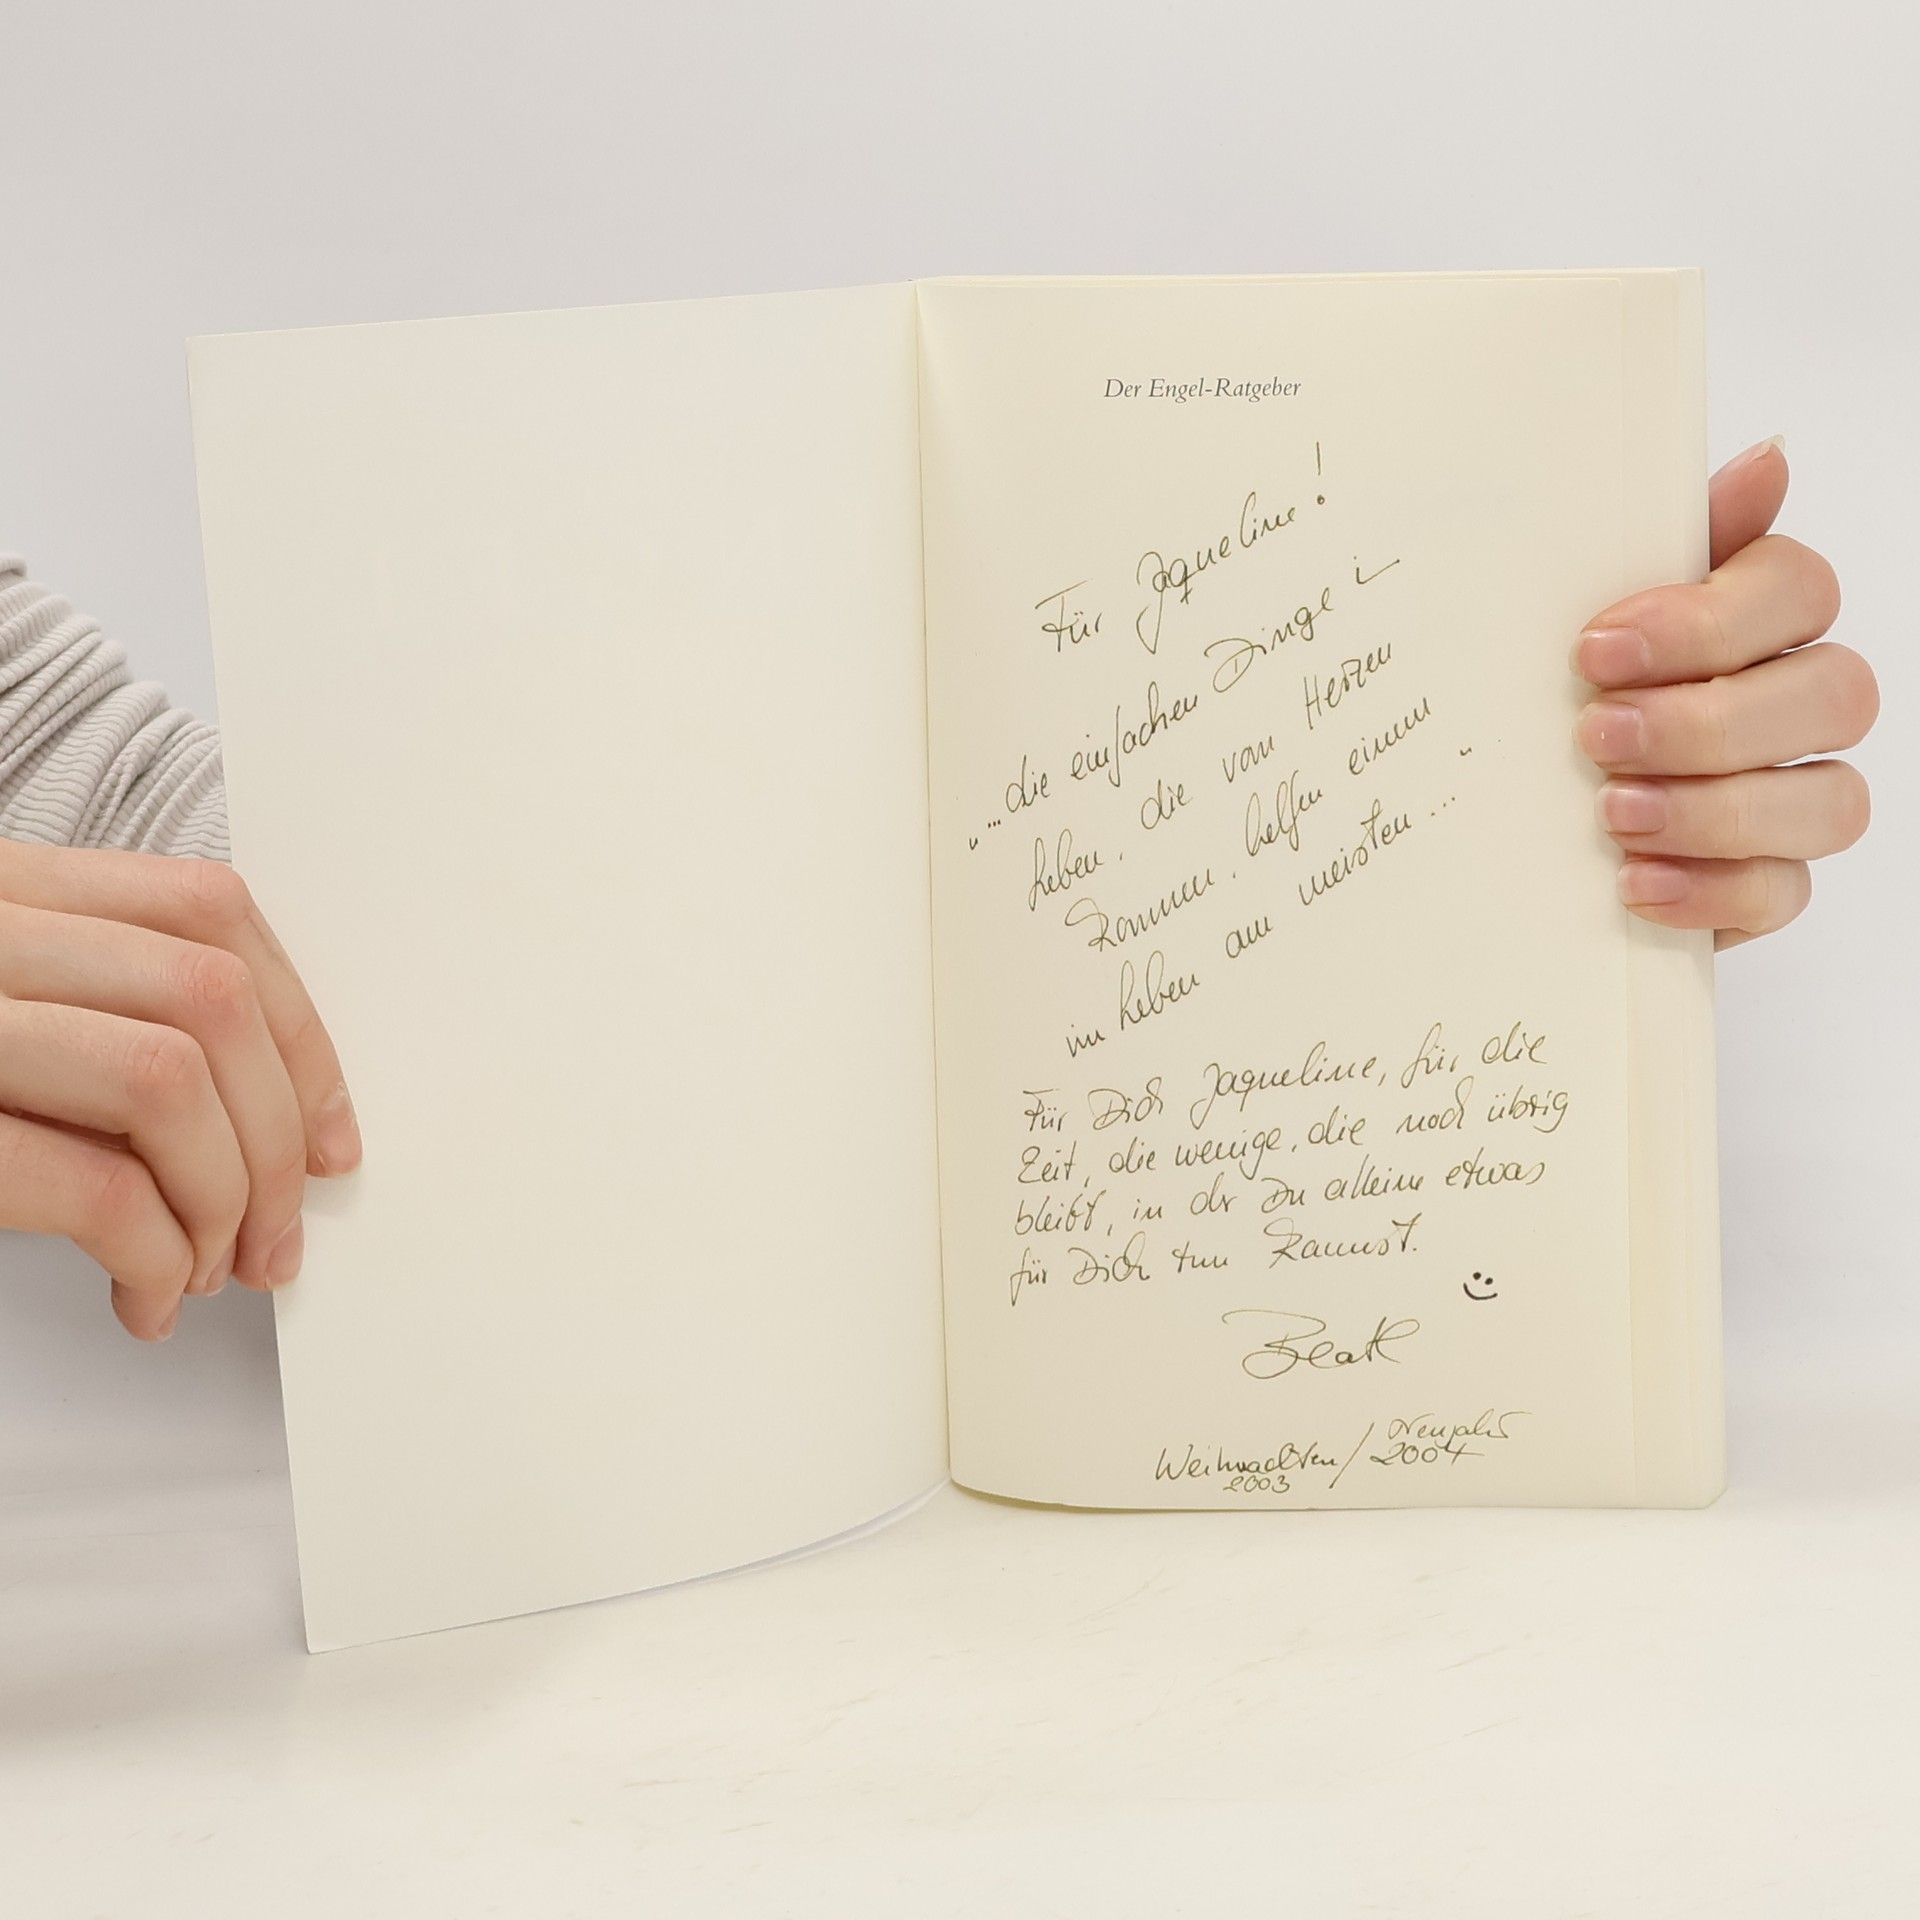 Der Engel-Ratgeber
Für Jaqueline!
"...die einfachen Dinge i
Leben, die vom Herzen
kommen, helfen einem
im Leben am meisten..."
Für Dich Jaqueline, für die
Zeit, die wenige, die noch übrig
bleibt, in der Du alleine etwas
für Dich tun kannst.
Beate
Weihnachten / Neujahr
2003 2004